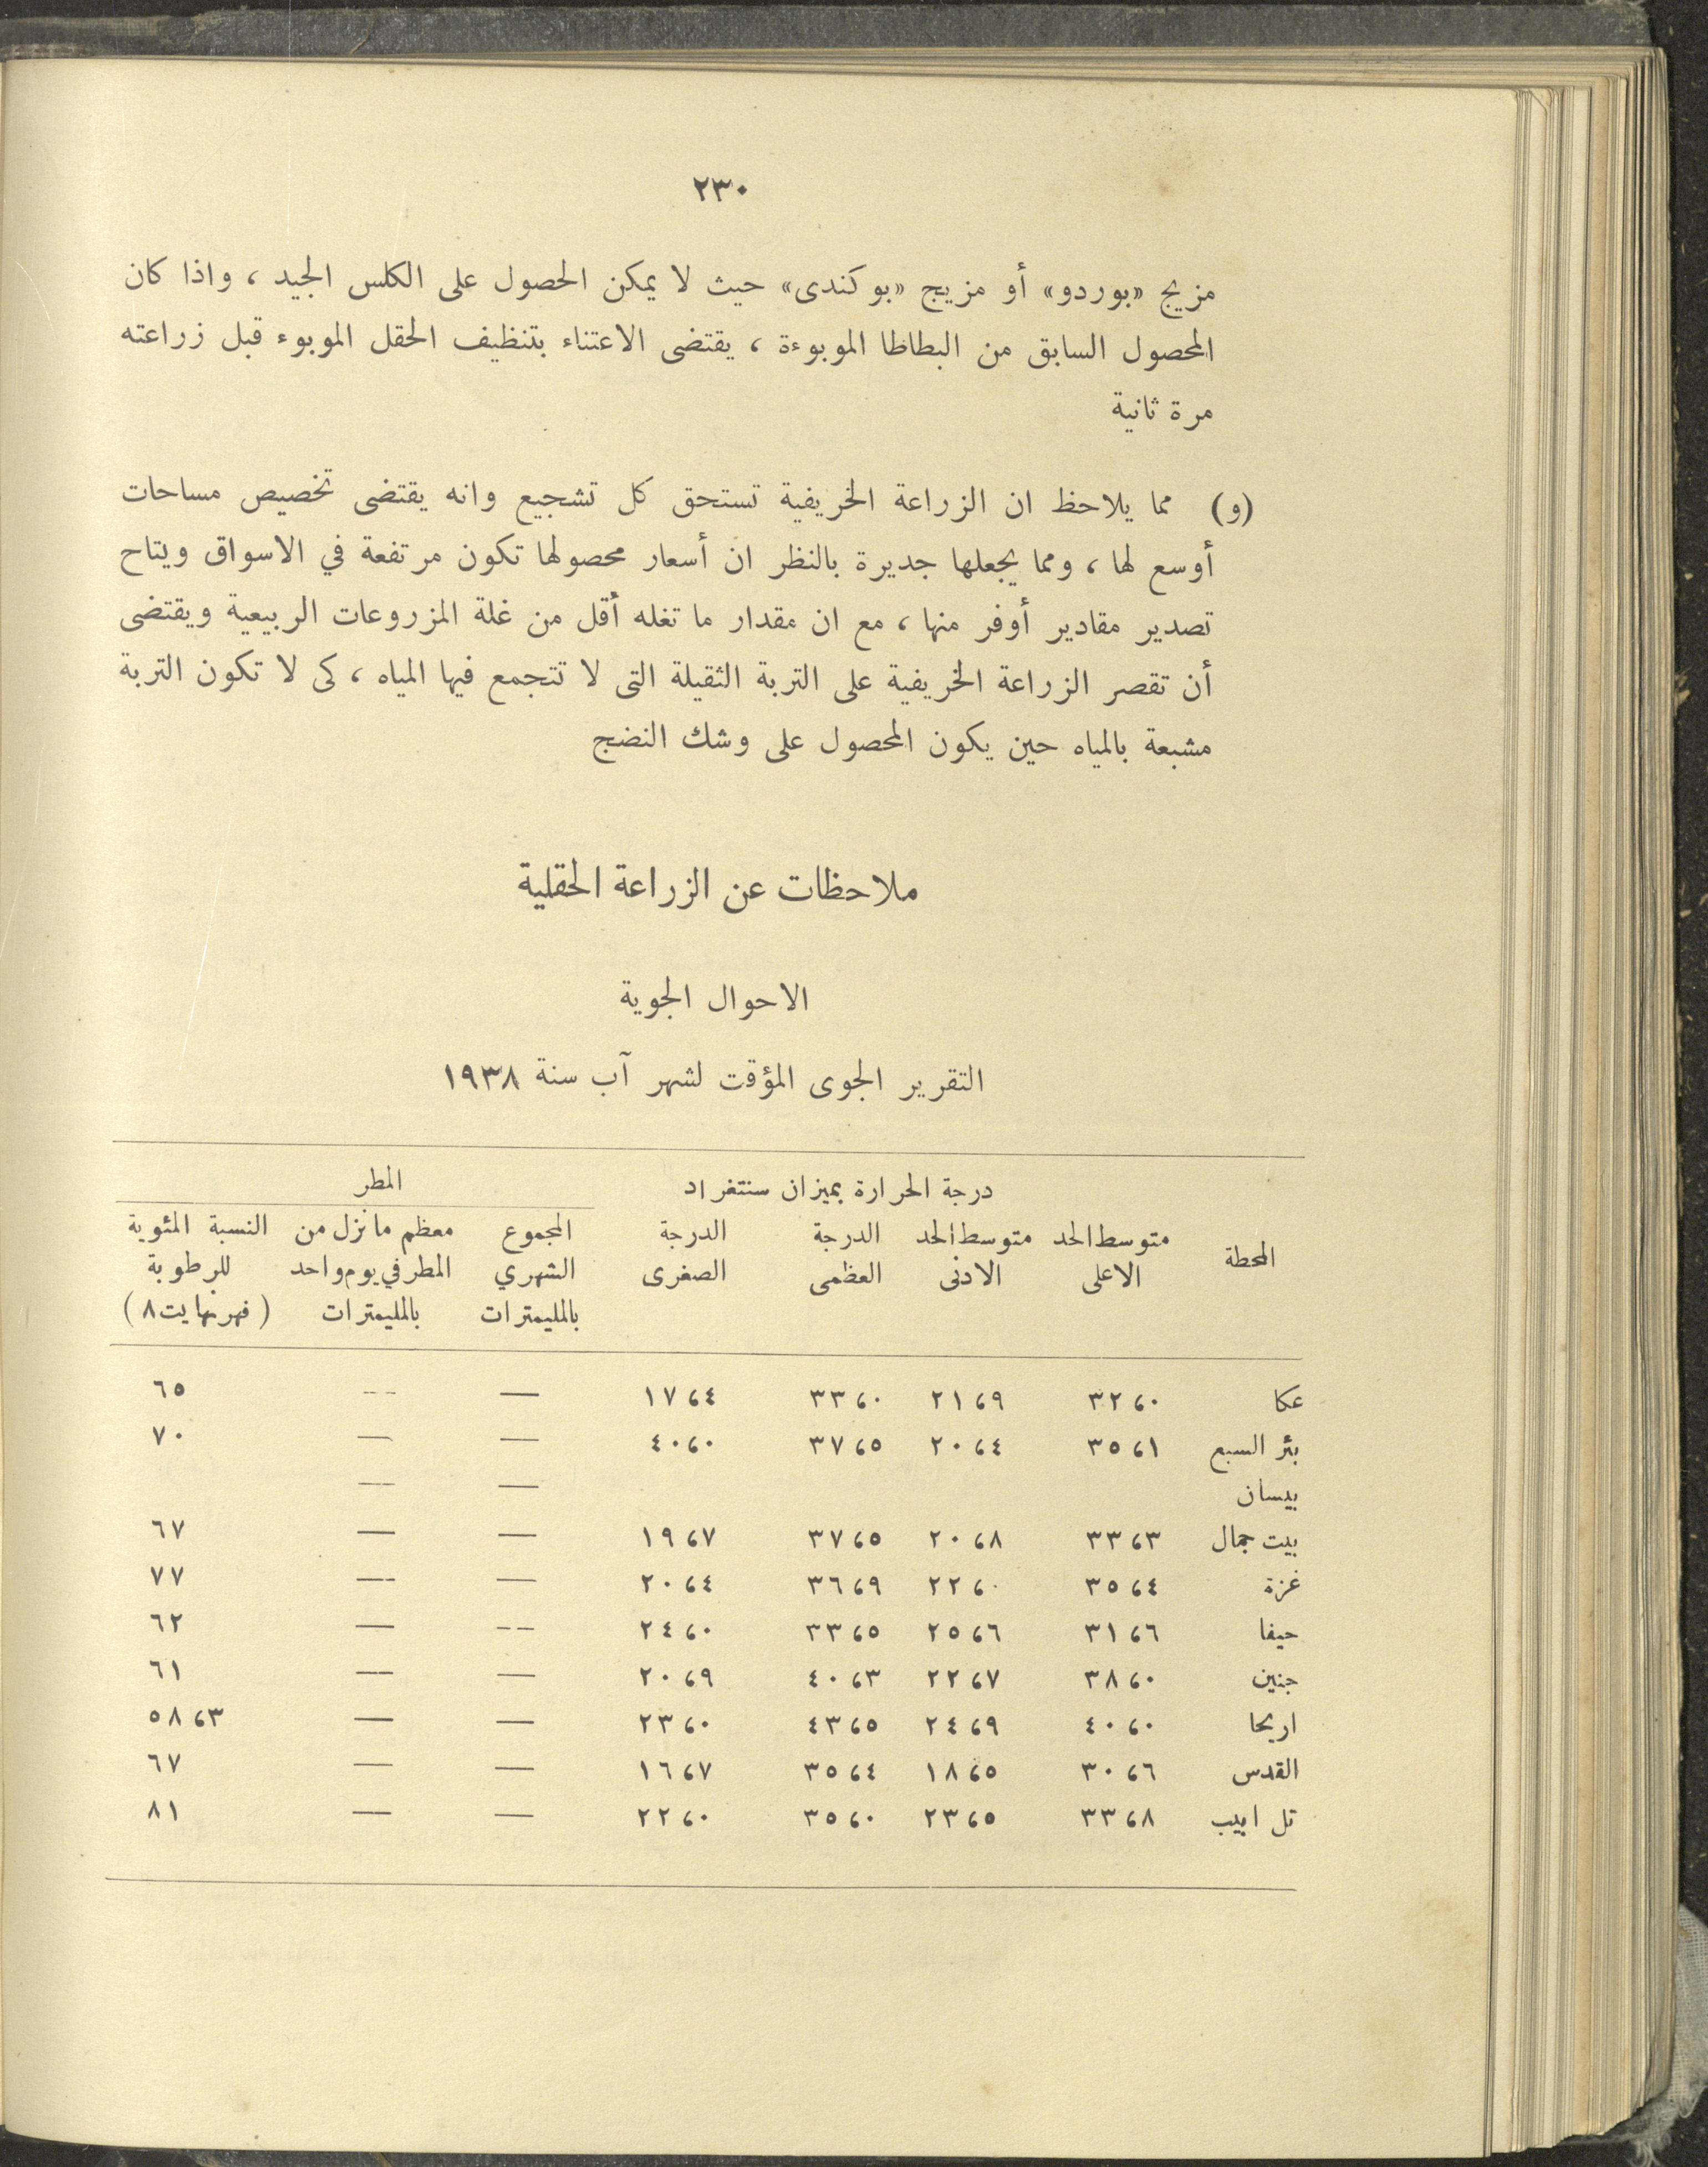 ٢٣٠
مزيج «بوردو» أو مزيج «بوكندى» حيث لا يمكن الحصول على الكلس الجيد ، واذا كان
المحصول السابق من البطاطا الموبوءة ، يقتضى الاعتناء بتنظيف الحقل الموبوء قبل زراعته
مرة ثانية
(و) مما يلاحظ ان الزراعة الخريفية تستحق كل تشجيع وانه يقتضى تخصيص مساحات
أوسع لها ، ومما يجعلها جديرة بالنظر ان أسعار محصولها تكون مرتفعة في الاسواق ويتاح
تصدير مقادير أوفر منها ، مع ان مقدار ما تغله أقل من غلة المزروعات الربيعية ويقتضى
أن تقصر الزراعة الخريفية على التربة الثقيلة التى لا تتجمع فيها المياه ، كى لا تكون التربة
مشبعة بالمياه حين يكون المحصول على وشك النضج
ملاحظات عن الزراعة الحقلية
الاحوال الجوية
التقرير الجوى المؤقت لشهر آب سنة ١٩٣٨
درجة الحرارة بميزان سنتغراد المطر
المحطة متوسط الحد متوسط الحد الدرجة الدرجة المجموع معظم ما نزل من النسبة المئوية
الاعلى الادنى العظمى الصغرى الشهري المطر في يوم واحد للرطوبة
بالمليمترات بالمليمترات (فهرنهايت ٨)
عكا ٣٢،٠ ٢١،٩ ٣٣،٠ ١٧،٤ — — ٦٥
بئر السبع ٣٥،١ ٢٠،٤ ٣٧،٥ ٤٠،٠ — — ٧٠
بيسان — —
بيت جمال ٣٣،٣ ٢٠،٨ ٣٧،٥ ١٩،٧ — — ٦٧
غزة ٣٥،٤ ٢٢،٠ ٣٦،٩ ٢٠،٤ — — ٧٧
حيفا ٣١،٦ ٢٥،٦ ٣٣،٥ ٢٤،٠ — — ٦٢
جنين ٣٨،٠ ٢٢،٧ ٤٠،٣ ٢٠،٩ — — ٦١
اريحا ٤٠،٠ ٢٤،٩ ٤٣،٥ ٢٣،٠ — — ٥٨،٣
القدس ٣٠،٦ ١٨،٥ ٣٥،٤ ١٦،٧ — — ٦٧
تل ابيب ٣٣،٨ ٢٣،٥ ٣٥،٠ ٢٢،٠ — — ٨١